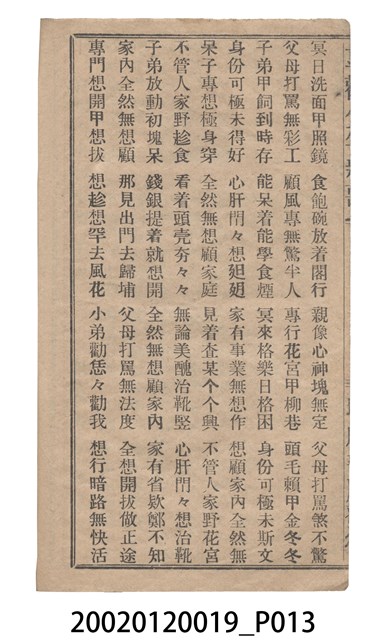 冥日洗面甲照鏡　食飽碗放着閣行　親像心神塊無定　父母打罵煞不驚
父母打罵無彩工　顧風專無驚半人　專行花宮甲柳巷　頭毛賴甲金冬冬
子弟甲飼到時存　能呆着能學食煙　冥來格樂日格困　身份可極未斯文
身份可極未得好　心肝門々想𨑨迌　家有事業無想作　想顧家內全然無
呆子專想極身穿　全然無想顧家庭　見着查某个个興　不管人家野花宮
不管人家野趁食　看着頭壳夯々々　無論美醜治靴竪　心肝門々想治靴
子弟放動初塊呆　錢銀提着就想開　全然無想顧家內　家有省欵鄭不知
家內全然無想顧　那見出門去歸埔　父母打罵無法度　全想開拔做正途
專門想開甲想拔　想趁想罕去風花　小弟勸恁々勸我　想行暗路無快活
20020120019_P013